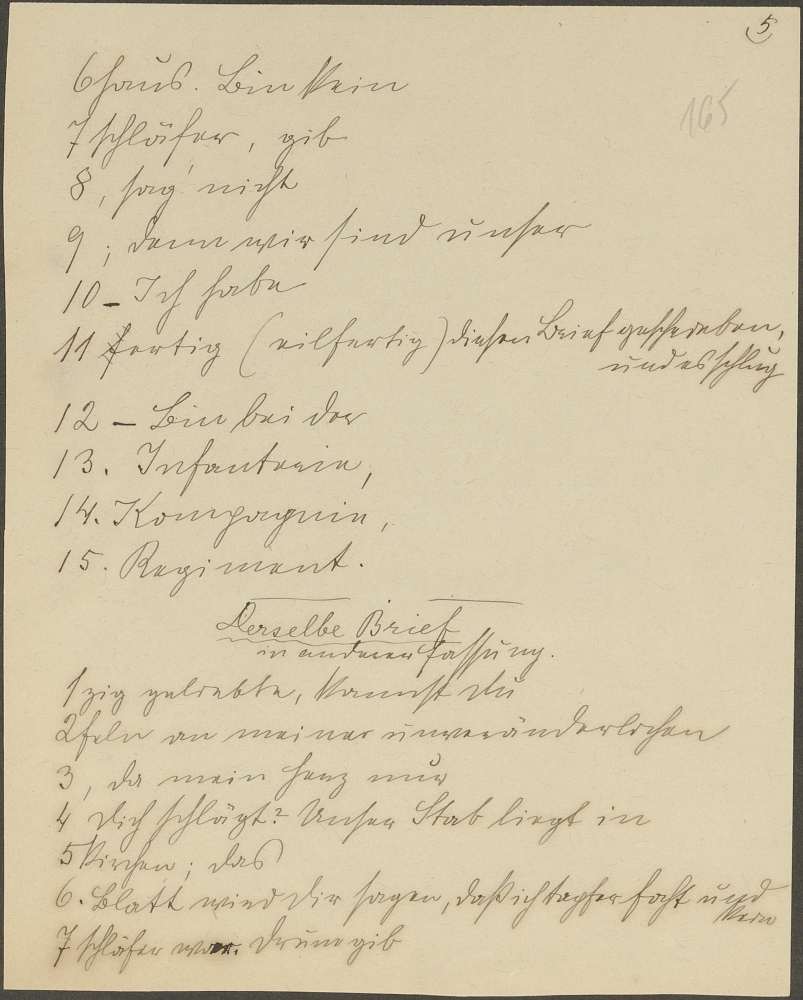 5
165
6 haus. Bin kein
7 schläfer, gib
8, sag' nicht
9; denn wir sind unser
10 - Ich habe
11 fertig (eilfertig) diesen Brief geschrieben,
und es schlug
12 - Bin bei der
13. Infanterie,
14. Kompagnie,
15. Regiment.
Derselbe Brief
in anderer Fassung.
1 zig geliebte, kannst du
2 feln an meiner unveränderlichen
3, da mein Herz nur
4 dich schlägt? Unser Stab liegt in
5 kirchen; das
6. Blatt wird dir sagen, daß ich tapfer focht und
kein
7 schläfer war. Drum gib